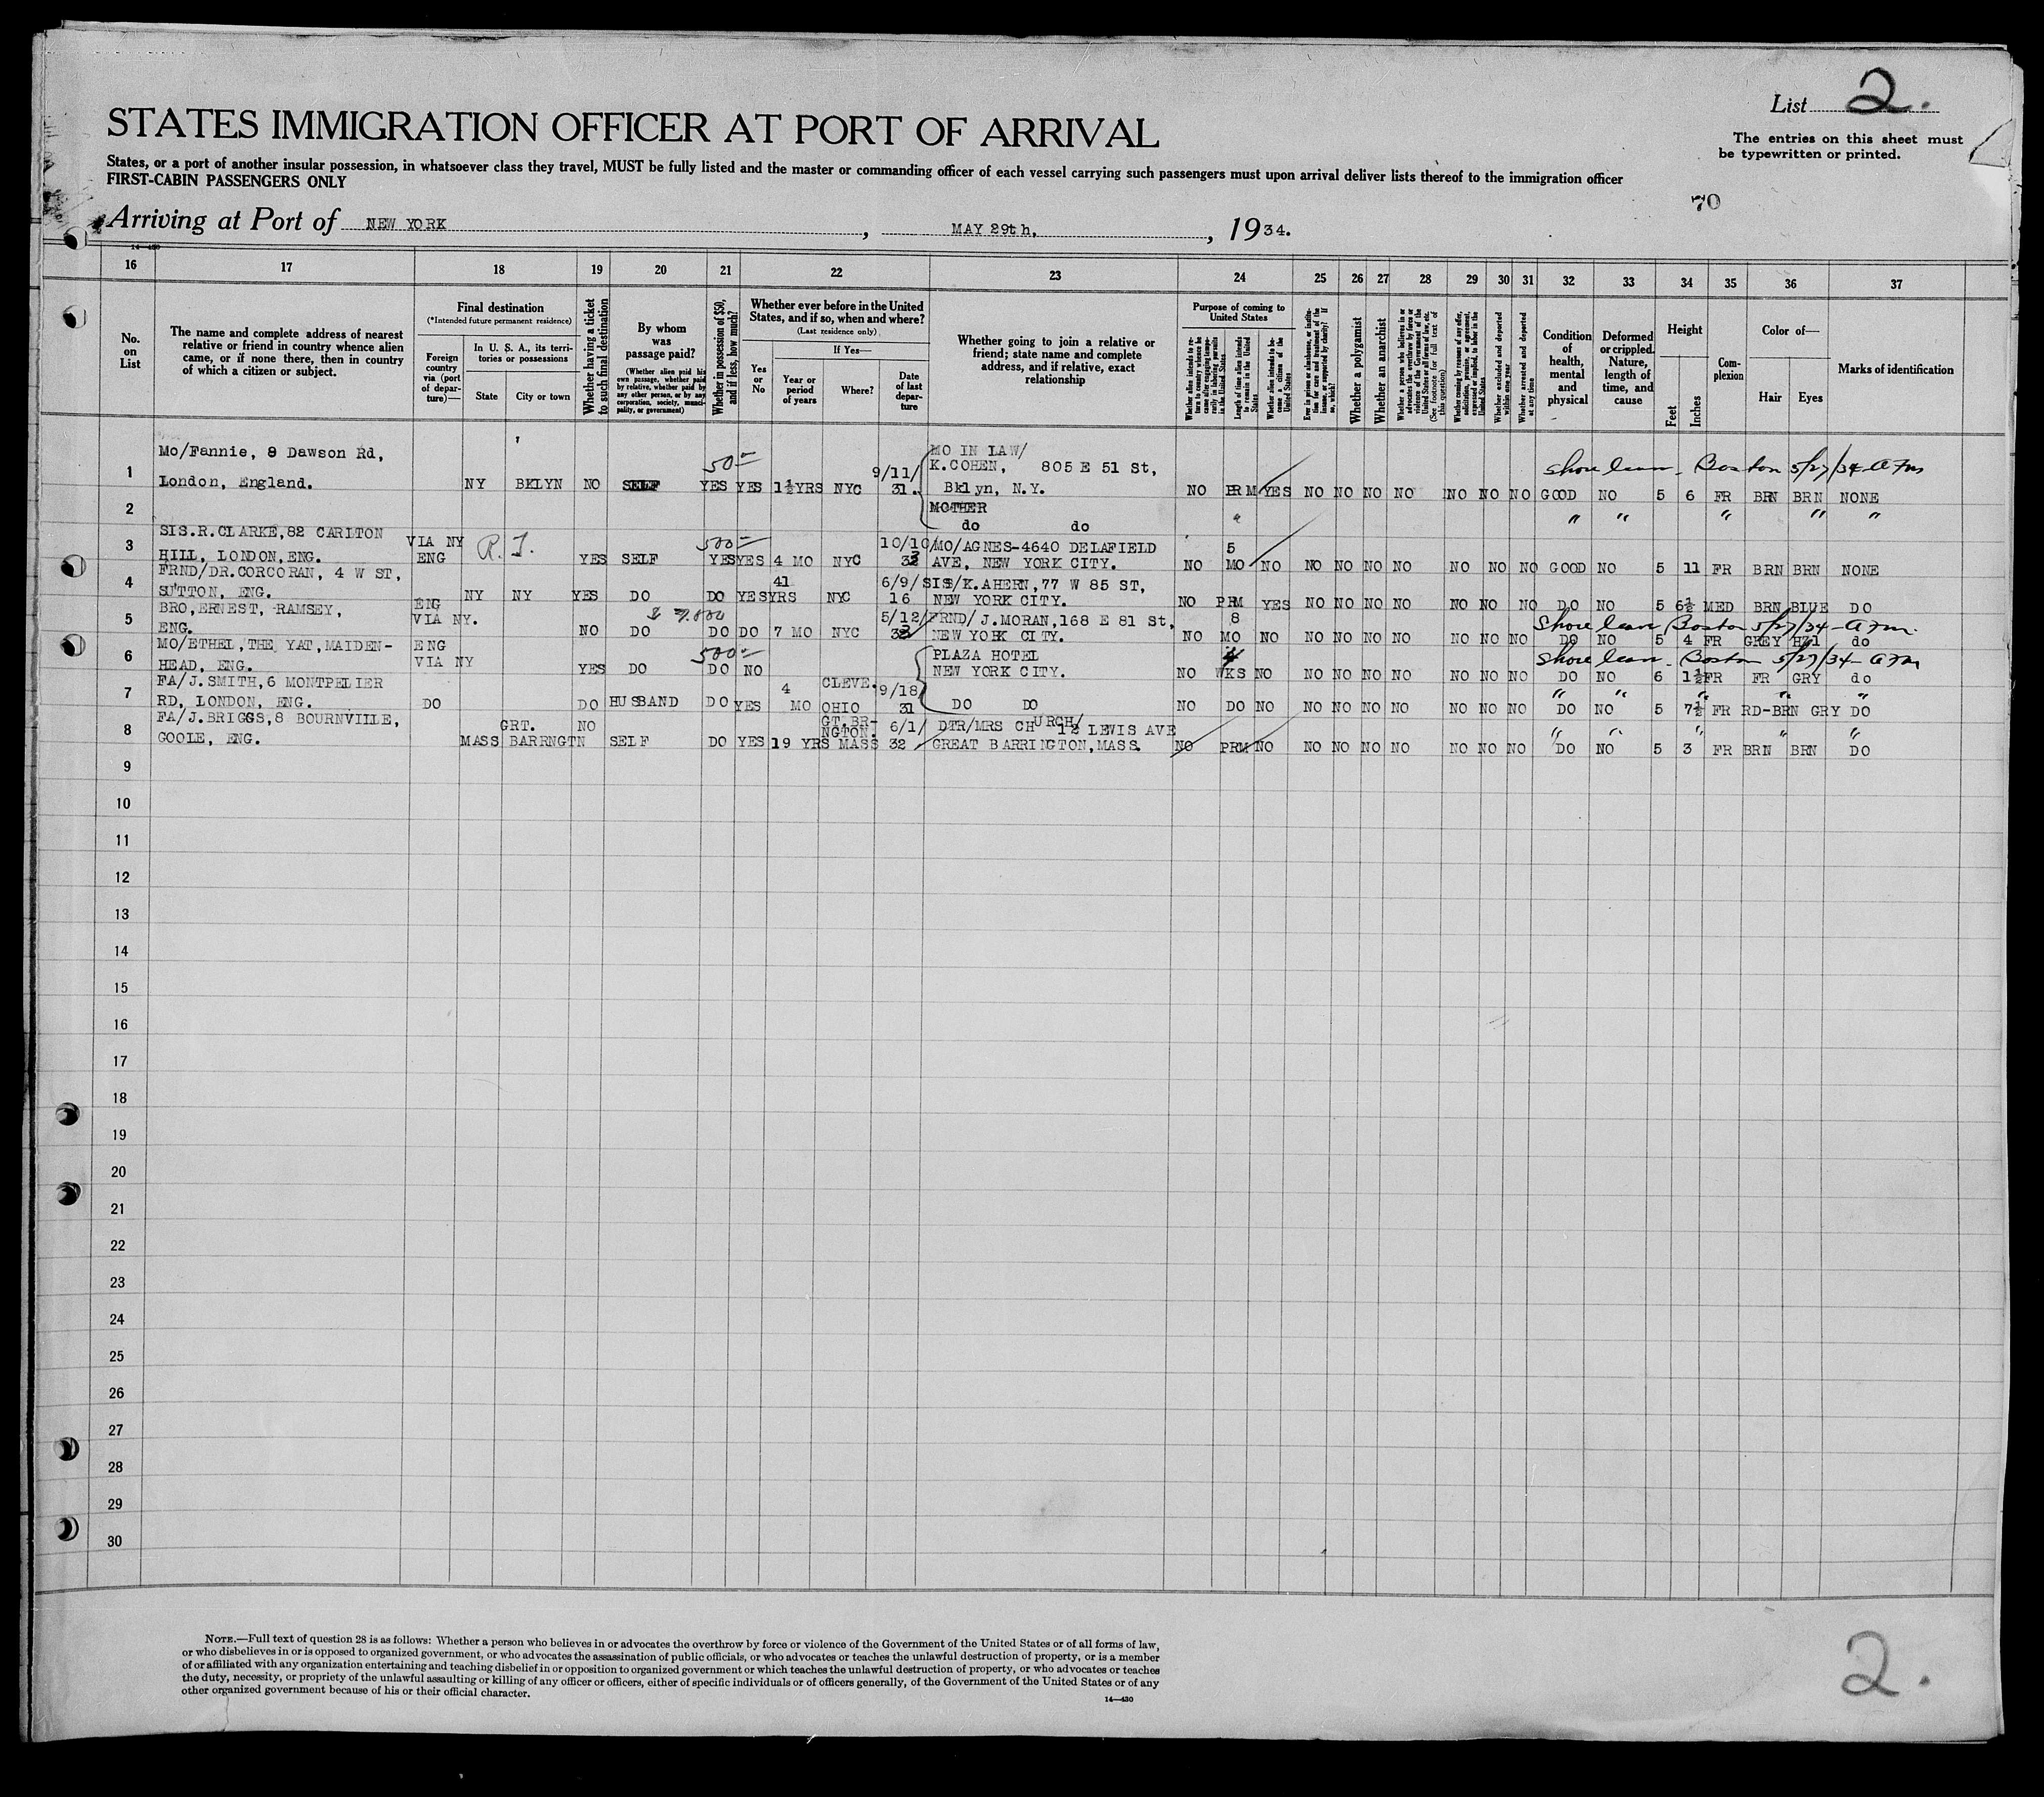 List 2.
STATES IMMIGRATION OFFICER AT PORT OF ARRIVAL
The entries on this sheet must
be typewritten or printed.
States, or a port of another insular possession, in whatsoever class they travel, MUST be fully listed and the master or commanding officer of each vessel carrying such passengers must upon arrival deliver lists thereof to the immigration officer
FIRST-CABIN PASSENGERS ONLY
70
Arriving at Port of NEW YORK, MAY 29th, 1934.
14—430
16 17 18 19 20 21 22 23 24 25 26 27 28 29 30 31 32 33 34 35 36 37
No. on List
The name and complete address of nearest relative or friend in country whence alien came, or if none there, then in country of which a citizen or subject.
Final destination
(*Intended future permanent residence)
Foreign country via (port of departure)—
In U. S. A., its territories or possessions
State
City or town
Whether having a ticket to such final destination
By whom was passage paid?
(Whether alien paid his own passage, whether paid by relative, whether paid by any other person, or by any corporation, society, municipality, or government)
Whether in possession of $50, and if less, how much?
Whether ever before in the United States, and if so, when and where?
(Last residence only)
Yes or No
If Yes—
Year or period of years
Where?
Date of last departure
Whether going to join a relative or friend; state name and complete address, and if relative, exact relationship
Purpose of coming to United States
Whether alien intends to return to country whence he came after engaging temporarily in laboring pursuits in the United States
Length of time alien intends to remain in the United States
Whether alien intends to become a citizen of the United States
Ever in prison or almshouse, or institution for care and treatment of the insane, or supported by charity? If so, which?
Whether a polygamist
Whether an anarchist
Whether a person who believes in or advocates the overthrow by force or violence of the Government of the United States or all forms of law, etc. (See footnote for full text of this question)
Whether coming by reason of any offer, solicitation, promise, or agreement, expressed or implied, to labor in the United States
Whether excluded and deported within one year
Whether arrested and deported at any time
Condition of health, mental and physical
Deformed or crippled. Nature, length of time, and cause
Height
Feet
Inches
Complexion
Color of—
Hair
Eyes
Marks of identification
Mo/Fannie, 8 Dawson Rd, 50— 9/11/ MO IN LAW/ Shore leave - Boston 5/27/34
1 London, England. NY BKLYN NO SELF YES YES 1½YRS NYC 31. K.COHEN, 805 E 51 St, Bklyn, N.Y. NO PRM YES NO NO NO NO NO NO NO GOOD NO 5 6 FR BRN BRN NONE
2 MOTHER do do " " " " " "
SIS.R.CLARKE,82 CARLTON VIA NY 500— 10/10/ MO/AGNES-4640 DELAFIELD 5
3 HILL, LONDON,ENG. ENG R.T. YES SELF YES YES 4 MO NYC 33 AVE, NEW YORK CITY. NO MO NO NO NO NO NO NO NO NO GOOD NO 5 11 FR BRN BRN NONE
FRND/DR.CORCORAN, 4 W ST, 41 6/9/ SIS/K.AHERN,77 W 85 ST,
4 SUTTON, ENG. NY NY YES DO DO YES YRS NYC 16 NEW YORK CITY. NO PRM YES NO NO NO NO NO NO NO DO NO 5 6½ MED BRN BLUE DO
BRO,ERNEST, RAMSEY, ENG VIA NY. 5/12/ FRND/ J.MORAN,168 E 81 St, 8 Shore leave, Boston 5/27/34
5 ENG. NO DO DO DO 7 MO NYC 33 NEW YORK CITY. NO MO NO NO NO NO NO NO NO NO DO NO 5 4 FR GREY HZl do
MO/ETHEL,THE YAT,MAIDEN- ENG 500— PLAZA HOTEL 4 Shore leave - Boston 5/27/34
6 HEAD, ENG. VIA NY YES DO DO NO NEW YORK CITY. NO WKS NO NO NO NO NO NO NO NO DO NO 6 1½ FR FR GRY do
FA/J.SMITH,6 MONTPELIER 4 CLEVE. 9/18/ " " " " "
7 RD, LONDON, ENG. DO DO HUSBAND DO YES MO OHIO 31 DO DO NO DO NO NO NO NO NO NO NO NO DO NO 5 7½ FR RD-BRN GRY DO
FA/J.BRIGGS,8 BOURNVILLE, GRT. NO GT.BR- NGTON. 6/1/ DTR/MRS CHURCH/ 12 LEWIS AVE " " " " "
8 GOOLE, ENG. MASS BARRNGTN SELF DO YES 19 YRS MASS 32 GREAT BARRINGTON,MASS. NO PRM NO NO NO NO NO NO NO NO DO NO 5 3 FR BRN BRN DO
9
10
11
12
13
14
15
16
17
18
19
20
21
22
23
24
25
26
27
28
29
30
NOTE.—Full text of question 28 is as follows: Whether a person who believes in or advocates the overthrow by force or violence of the Government of the United States or of all forms of law,
or who disbelieves in or is opposed to organized government, or who advocates the assassination of public officials, or who advocates or teaches the unlawful destruction of property, or is a member
of or affiliated with any organization entertaining and teaching disbelief in or opposition to organized government or which teaches the unlawful destruction of property, or who advocates or teaches
the duty, necessity, or propriety of the unlawful assaulting or killing of any officer or officers, either of specific individuals or of officers generally, of the Government of the United States or of any
other organized government because of his or their official character.
14—430
2.